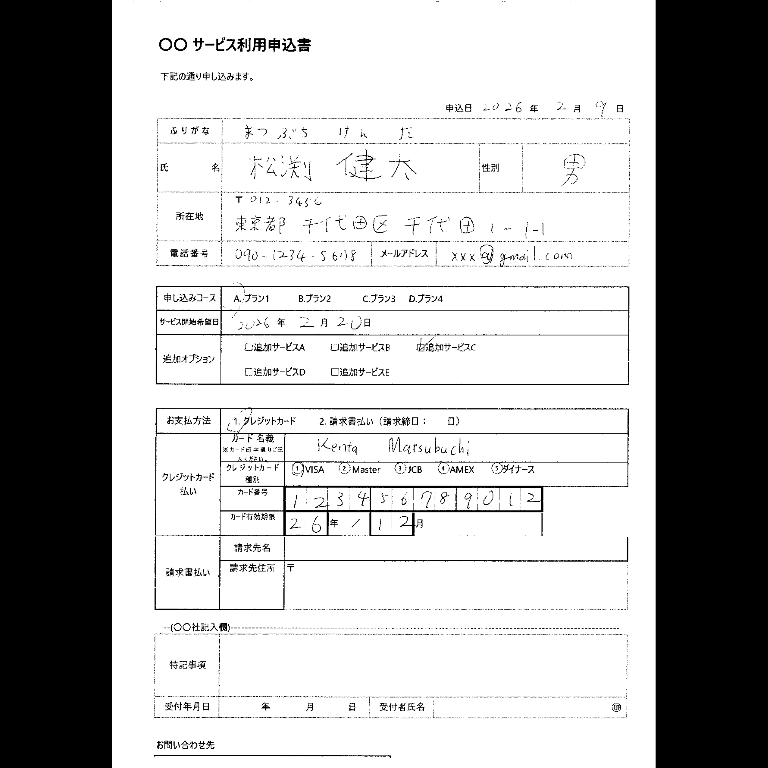 〇〇 サービス利用申込書
下記の通り申し込みます。
申込日 2026 年 2 月 9 日
ふりがな まつぶち けんた
氏名 松渕 健太 性別 男
所在地 〒012-3456
東京都 千代田区 千代田 1-1-1
電話番号 090-1234-5678 メールアドレス xxx@gmail.com
申し込みコース A.プラン1 B.プラン2 C.プラン3 D.プラン4
サービス開始希望日 2026 年 2 月 20日
追加オプション □追加サービスA □追加サービスB ☑追加サービスC
□追加サービスD □追加サービスE
お支払方法 1. クレジットカード 2. 請求書払い（請求締日： 日）
クレジットカード払い
カード 名義 Kenta Matsubuchi
クレジットカード種別 ①VISA ②Master ③JCB ④AMEX ⑤ダイナース
カード番号 123456789012
カード有効期限 26年 / 12月
請求書払い
請求先名
請求先住所 〒
---(〇〇社記入欄)---
特記事項
受付年月日 年 月 日 受付者氏名 ㊞
お問い合わせ先